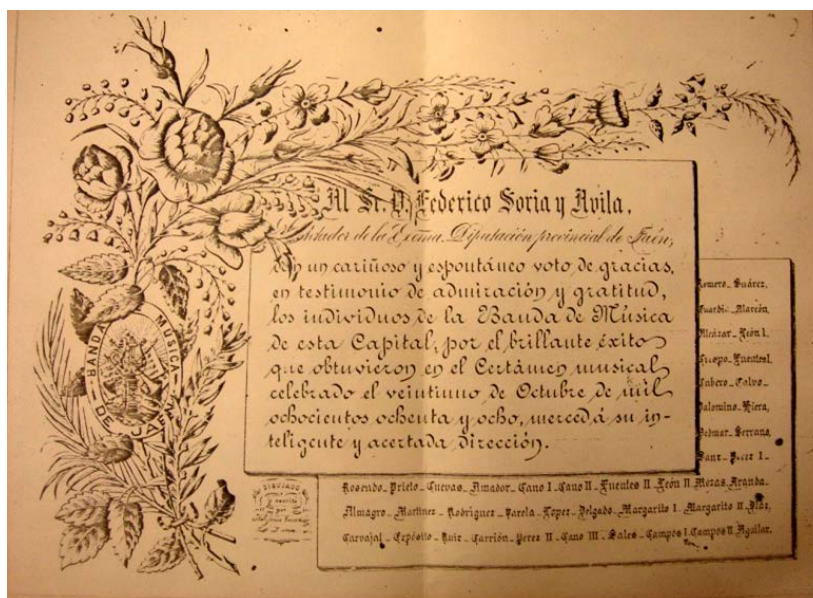 Al Sr. D. Federico Soria y Avila,
de la Excma. Diputación provincial de Jaén,
dan un cariñoso y espontáneo voto de gracias,
en testimonio de admiración y gratitud,
los individuos de la Banda de Música
de esta Capital, por el brillante éxito
que obtuvieron en el Certámen musical
celebrado el veintiuno de Octubre de mil
ochocientos ochenta y ocho, merced á su in-
teligente y acertada dirección.
BANDA MUSICA
DE JAEN
Romero_ Suárez,
Guardia_ Alarcón,
Alcázar_ León I_
Crespo_ Fuentes I_
Cubero_ Calvo_
Palomino_ Riera,
Bedmar_ Serrano,
Sanz_ Perez I_
Rosendo_ Prieto_ Cuevas_ Amador_ Cano I_ Cano II_ Fuentes II_ León II_ Mozas_ Aranda_
Almagro_ Martinez_ Rodriguez_ Varela_ Lopez_ Delgado_ Margarito I_ Margarito II_ Diaz,
Carvajal_ Expósito_ Ruiz_ Carrión_ Perez II_ Cano III_ Sales_ Campos I_ Campos II_ Aguilar.
DIBUJADO
y escrito
por